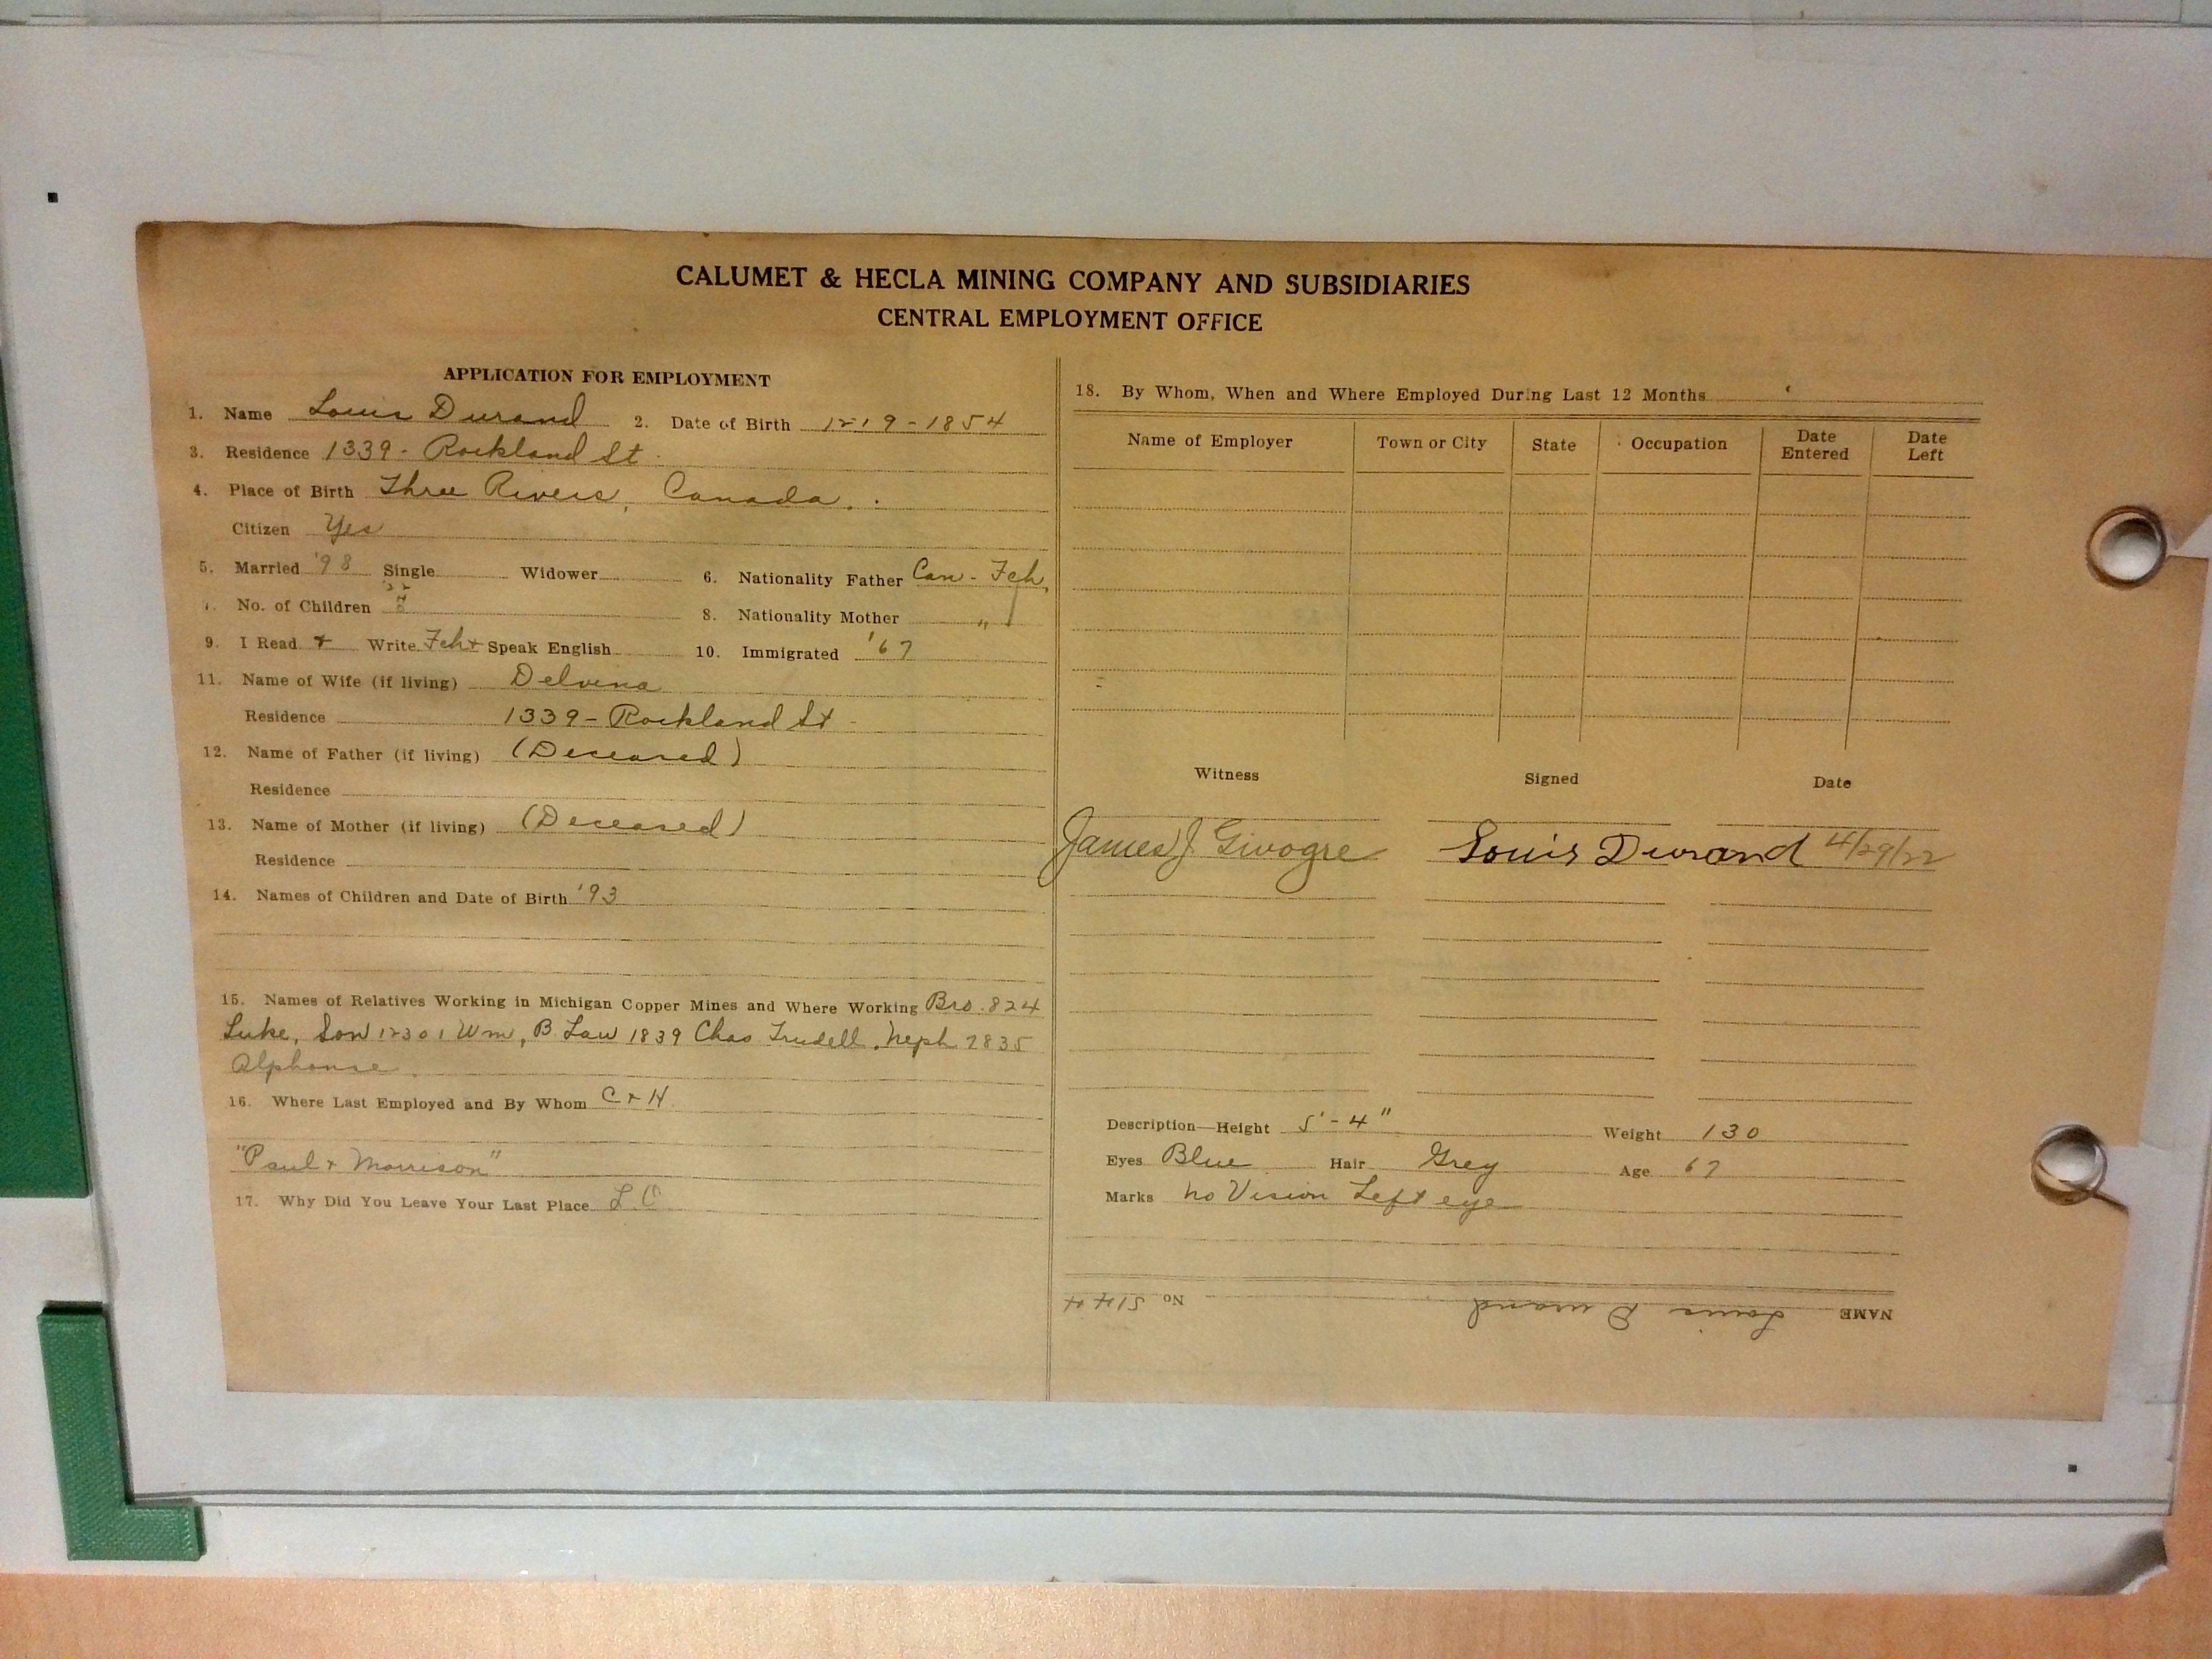 CALUMET & HECLA MINING COMPANY AND SUBSIDIARIES
CENTRAL EMPLOYMENT OFFICE
APPLICATION FOR EMPLOYMENT
1. Name Louis Durand 2. Date of Birth 12-19-1854
3. Residence 1339 - Rockland St.
4. Place of Birth Three Rivers, Canada.
Citizen Yes
5. Married '98 Single Widower 6. Nationality Father Can - Fch,
7. No. of Children 8. Nationality Mother "
9. I Read + Write Fch + Speak English 10. Immigrated '67
11. Name of Wife (if living) Delvina
Residence 1339 - Rockland St -
12. Name of Father (if living) (Deceased)
Residence
13. Name of Mother (if living) (Deceased)
Residence
14. Names of Children and Date of Birth '93
15. Names of Relatives Working in Michigan Copper Mines and Where Working Bro. 824
Luke, Son 12301 Wm, B. Law 1839 Chas Trudell, Neph 2835
Alphonse.
16. Where Last Employed and By Whom C + H
"Paul + Morrison"
17. Why Did You Leave Your Last Place L.O.
18. By Whom, When and Where Employed During Last 12 Months
Name of Employer Town or City State Occupation Date Entered Date Left
Witness Signed Date
James J Givogre Louis Durand 4/29/22
Description—Height 5'-4" Weight 130
Eyes Blue Hair Grey Age 67
Marks No Vision Left eye
NAME Louis Durand No 5144